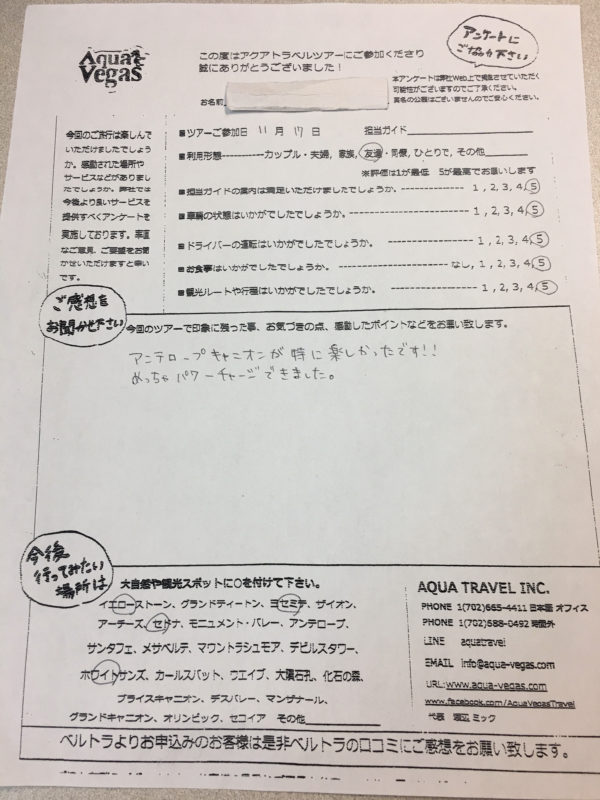 Aqua Vegas
この度はアクアトラベルツアーにご参加くださり
誠にありがとうございました！
アンケートに
ご協力下さい
本アンケートは弊社Web上で掲載させていただく
可能性がございますのでご了承ください。
実名の公開はございませんのでご安心ください。
お名前
今回のご旅行は楽しんで
いただけましたでしょう
か。感動された場所や
サービスなどがありまし
たでしょうか。弊社では
今後より良いサービスを
提供すべくアンケートを
実施しております。率直
なご意見、ご要望をお聞
かせいただけますと幸い
です。
■ツアーご参加日 11月 17日 担当ガイド
■利用形態-----------カップル・夫婦, 家族, 友達・同僚, ひとりで, その他
※評価は1が最低 5が最高でお願いします
■担当ガイドの案内は満足いただけましたでしょうか。 --------------- 1, 2, 3, 4, 5
■車輌の状態はいかがでしたでしょうか。 1, 2, 3, 4, 5
■ドライバーの運転はいかがでしたでしょうか。 ------------ 1, 2, 3, 4, 5
■お食事はいかがでしたでしょうか。 ------------------- なし, 1, 2, 3, 4, 5
■観光ルートや行程はいかがでしたでしょうか。 ------------- 1, 2, 3, 4, 5
ご感想を
お聞かせ下さい
今回のツアーで印象に残った事、お気づきの点、感動したポイントなどをお願い致します。
アンテロープキャニオンが特に楽しかったです!!
めっちゃパワーチャージできました。
今後
行ってみたい
場所は
大自然や観光スポットに○を付けて下さい。
イエローストーン、グランドティートン、ヨセミテ、ザイオン、
アーチーズ、セドナ、モニュメント・バレー、アンテロープ、
サンタフェ、メサベルテ、マウントラシュモア、デビルスタワー、
ホワイトサンズ、カールスバット、ウエイブ、大隕石孔、化石の森、
ブライスキャニオン、デスバレー、マンザナール、
グランドキャニオン、オリンピック、セコイア その他
AQUA TRAVEL INC.
PHONE 1(702)665-4411 日本語 オフィス
PHONE 1(702)688-0492 時間外
LINE aquatravel
EMAIL info@aqua-vegas.com
URL: www.aqua-vegas.com
www.facebook.com/AquaVegasTravel
代表 渡辺 ミック
ベルトラよりお申込みのお客様は是非ベルトラの口コミにご感想をお願い致します。